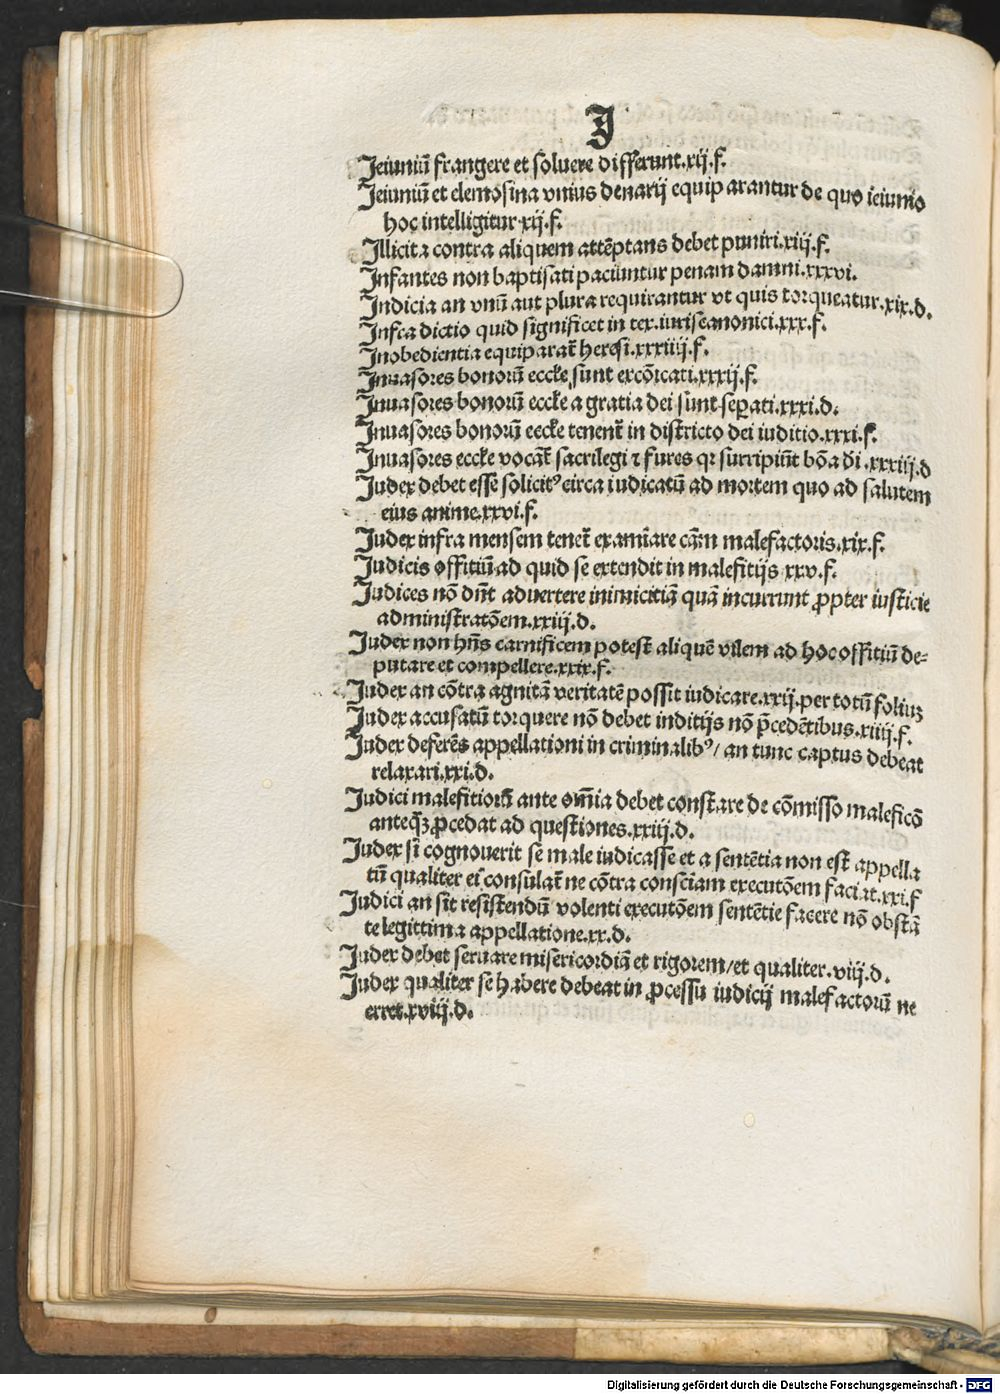 J
Jeiuniū frangere et soluere differunt.xij.f.
Jeiuniū et elemosina vnius denarij equiparantur de quo ieiunio
hoc intelligitur.xij.f.
Jllicita contra aliquem attēptans debet puniri.xiij.f.
Jnfantes non baptisati paciuntur penam damni.xxxvi.
Jndicia an vnū aut plura requirantur vt quis torqueatur.xix.d.
Jnfra dictio quid significet in tex.iuriscanonici.xxx.f.
Jnobedientia equiparat̄ heresi.xxxiiij.f.
Jnuasores bonorū eccl̄e sunt excōicati.xxxij.f.
Jnuasores bonorū eccl̄e a gratia dei sunt seꝑati.xxxi.d.
Jnuasores bonorū eccl̄e tenent̄ in districto dei iuditio.xxxi.f.
Jnuasores eccl̄e vocāt̄ sacrilegi ⁊ fures qꝛ surripiūt bōa dī.xxxiij.d
Judex debet esse solicitꝰ circa iudicatū ad mortem quo ad salutem
eius anime.xxvi.f.
Judex infra mensem tenet̄ examīare cām malefactoris.xix.f.
Judicis offitiū ad quid se extendit in malefitijs xxv.f.
Judices nō dn̄t aduertere inimicitiā quā incurrunt ꝓpter iusticie
administratōem.xxiij.d.
Judex non hn̄s carnificem potest aliquē vilem ad hoc offitiū de-
putare et compellere.xxix.f.
Judex an cōtra agnitā veritatē possit iudicare.xxij.per totū foliuꝫ
Judex accusatū torquere nō debet inditijs nō p̄cedētibus.xiiij.f.
Judex deferēs appellationi in criminalibꝰ/ an tunc captus debeat
relaxari.xxi.d.
Judici malefitiorū ante om̄ia debet constare de cōmisso maleficō
anteqꝫ ꝓcedat ad questiones.xxiij.d.
Judex si cognouerit se male iudicasse et a sentētia non est appella
tū qualiter ei consulat̄ ne cōtra consciam executōem faciat.xxi.f
Judici an sit resistendū volenti executōem sentētie facere nō obstā
te legittima appellatione.xx.d.
Judex debet seruare misericordiā et rigorem/et qualiter.viij.d.
Judex qualiter se habere debeat in ꝓcessu iudicij malefactorū ne
erret.xviij.d.
Digitalisierung gefördert durch die Deutsche Forschungsgemeinschaft - DFG